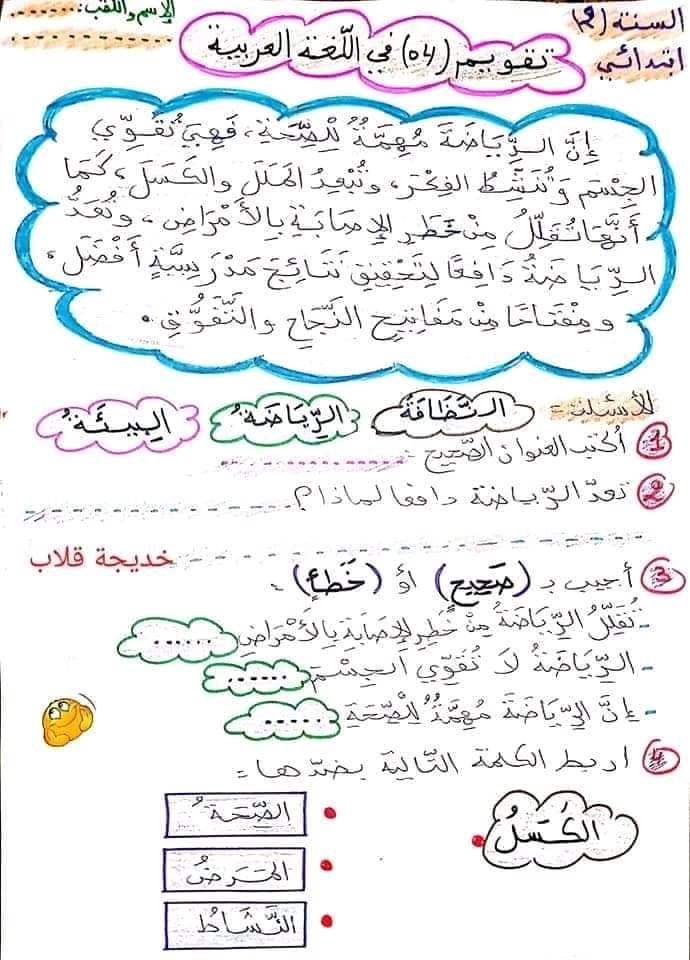 السنة (2)
ابتدائي
الإسم واللقب:
تقويم (04) في اللّغة العربية
إِنَّ الرِّيَاضَةَ مُهِمَّةٌ لِلْصِّحَةِ، فَهِيَ تُقَوِّي
الجِسْم وَتُنَشِّطُ الفِكْرَ، وتُبْعِدُ المَلَلَ والكَسَلَ، كَمَا
أَنَّهَا تُقَلِّلُ مِنْ خَطَرِ الإِصَابَةِ بِالأَمْرَاضِ، وتُعَدُّ
الرِّيَاضَةُ دَافِعًا لِتَحْقِيقِ نَتَائِجَ مَدْرَسِيَّةٍ أَفْضَل،
ومِفْتَاحًا مِنْ مَفَاتِيحِ النَّجَاحِ والتَّفَوُّقِ.
الأسئلة=
النَّظَافَةُ
الرِّيَاضَةُ
البِيئَةُ
1 أكتب العنوان الصّحيح
2 تعدّ الرّياضة دافعا لماذا؟
خديجة قلاب
3 أجيب بـ (صَحِيح) أو (خَطَأ).
- تُقَلِّلُ الرِّيَاضَةُ مِنْ خَطَرِ الإِصَابَةِ بِالأَمْرَاضِ ......
- الرِّيَاضَةُ لَا تُقَوِّي الجِسْمَ ......
- إِنَّ الرِّيَاضَةَ مُهِمَّةٌ لِلْصِّحَةِ .....
4 اربط الكلمة التّالية بضدّها=
الكَسَلُ
الصِّحَةُ
المَرَضُ
النَّشَاطُ